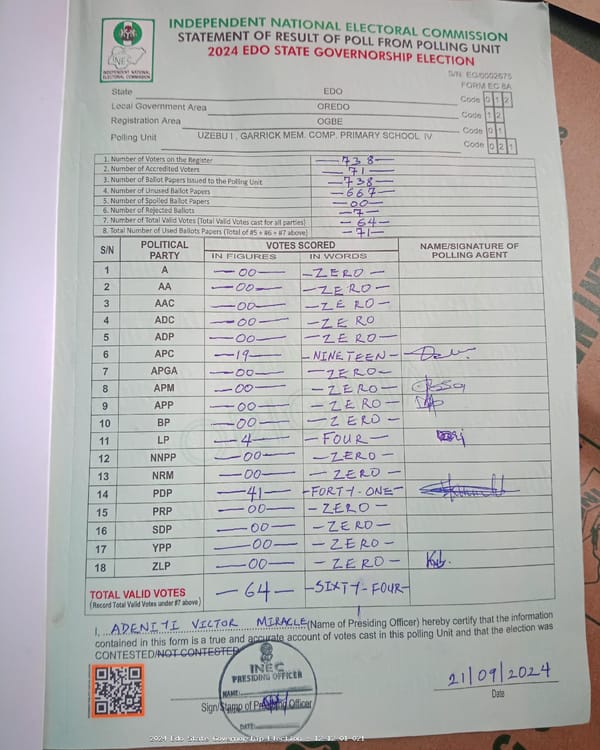 INDEPENDENT NATIONAL ELECTORAL COMMISSION
STATEMENT OF RESULT OF POLL FROM POLLING UNIT
2024 EDO STATE GOVERNORSHIP ELECTION
INEC
INDEPENDENT NATIONAL ELECTORAL COMMISSION
S/N: EG/0002675
FORM EC 8A
State EDO Code 0 1 2
Local Government Area OREDO Code 1 2
Registration Area OGBE Code 0 1
Polling Unit UZEBU I, GARRICK MEM. COMP. PRIMARY SCHOOL IV Code 0 2 1
1. Number of Voters on the Register —738—
2. Number of Accredited Voters —71—
3. Number of Ballot Papers Issued to the Polling Unit —738—
4. Number of Unused Ballot Papers —667—
5. Number of Spoiled Ballot Papers —00—
6. Number of Rejected Ballots —7—
7. Number of Total Valid Votes (Total Valid Votes cast for all parties) —64—
8. Total Number of Used Ballots Papers (Total of #5 + #6 + #7 above) —71—
S/N POLITICAL PARTY VOTES SCORED NAME/SIGNATURE OF POLLING AGENT
IN FIGURES IN WORDS
1 A —00— —ZERO—
2 AA —00— —ZERO—
3 AAC —00— —ZERO—
4 ADC —00— —ZERO
5 ADP —00— —ZERO—
6 APC —19— —NINETEEN—
7 APGA —00— —ZERO—
8 APM —00— —ZERO—
9 APP —00— —ZERO—
10 BP —00— —ZERO—
11 LP —4— —FOUR—
12 NNPP —00— —ZERO—
13 NRM —00— —ZERO—
14 PDP —41— —FORTY-ONE—
15 PRP —00— —ZERO—
16 SDP —00— —ZERO—
17 YPP —00— —ZERO—
18 ZLP —00— —ZERO—
TOTAL VALID VOTES —64— —SIXTY-FOUR—
(Record Total Valid Votes under #7 above)
I, ADENIYI VICTOR MIRACLE (Name of Presiding Officer) hereby certify that the information
contained in this form is a true and accurate account of votes cast in this polling Unit and that the election was
CONTESTED/NOT CONTESTED
INEC
PRESIDING OFFICER
NAME:
Sign/Stamp of Presiding Officer
DATE:
21/09/2024
Date
2024 Edo State Governorship Election - 12-12-01-021